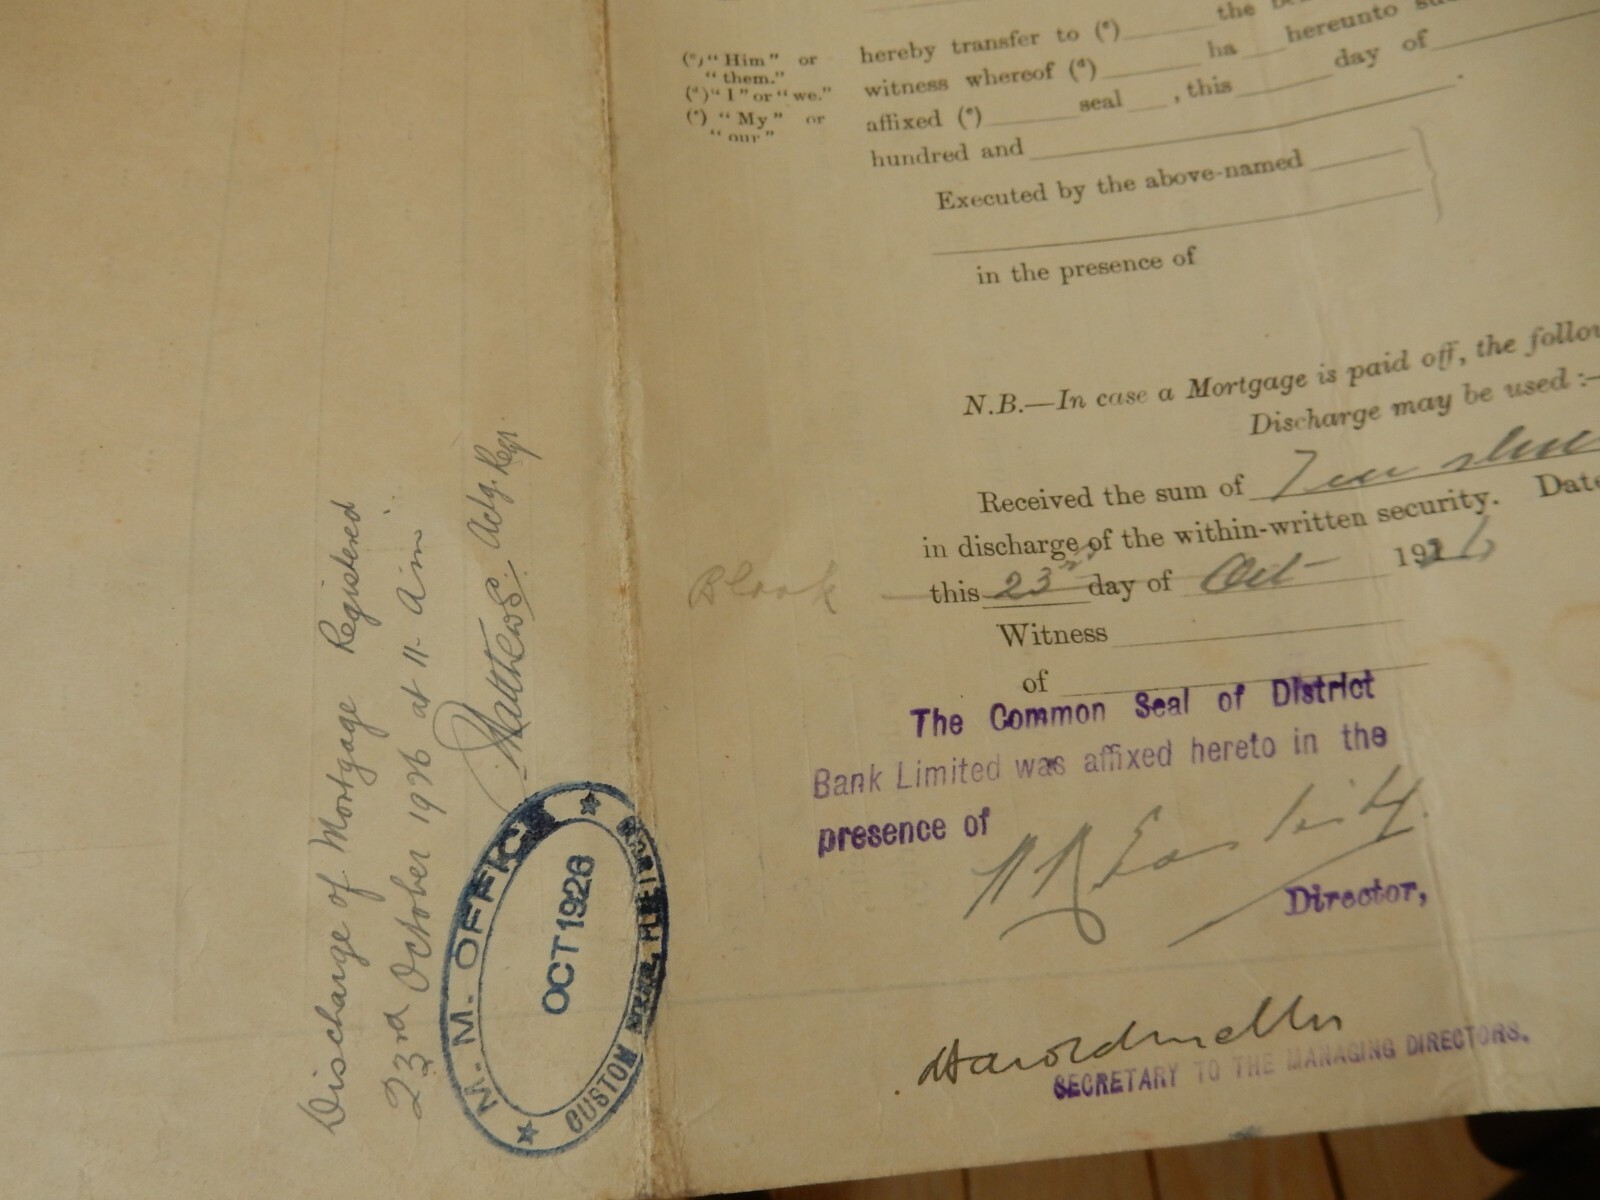 hereby transfer to (c) the
witness whereof (d) ha hereunto
affixed (e) seal , this day of
hundred and
(c) "Him" or
"them."
(d) "I" or "we."
(e) "My" or
"our"
Executed by the above-named
in the presence of
N.B.—In case a Mortgage is paid off, the
Discharge may be used :—
Received the sum of Ten
in discharge of the within-written security.
this 23rd day of Oct 1926
Witness
of
The Common Seal of District
Bank Limited was affixed hereto in the
presence of
Director,
SECRETARY TO THE MANAGING DIRECTORS.
Discharge of Mortgage Registered
23rd October 1926 at 11. a.m.
Matthews. Actg. Regr.
M. M. OFFICE
OCT 1926
CUSTOM